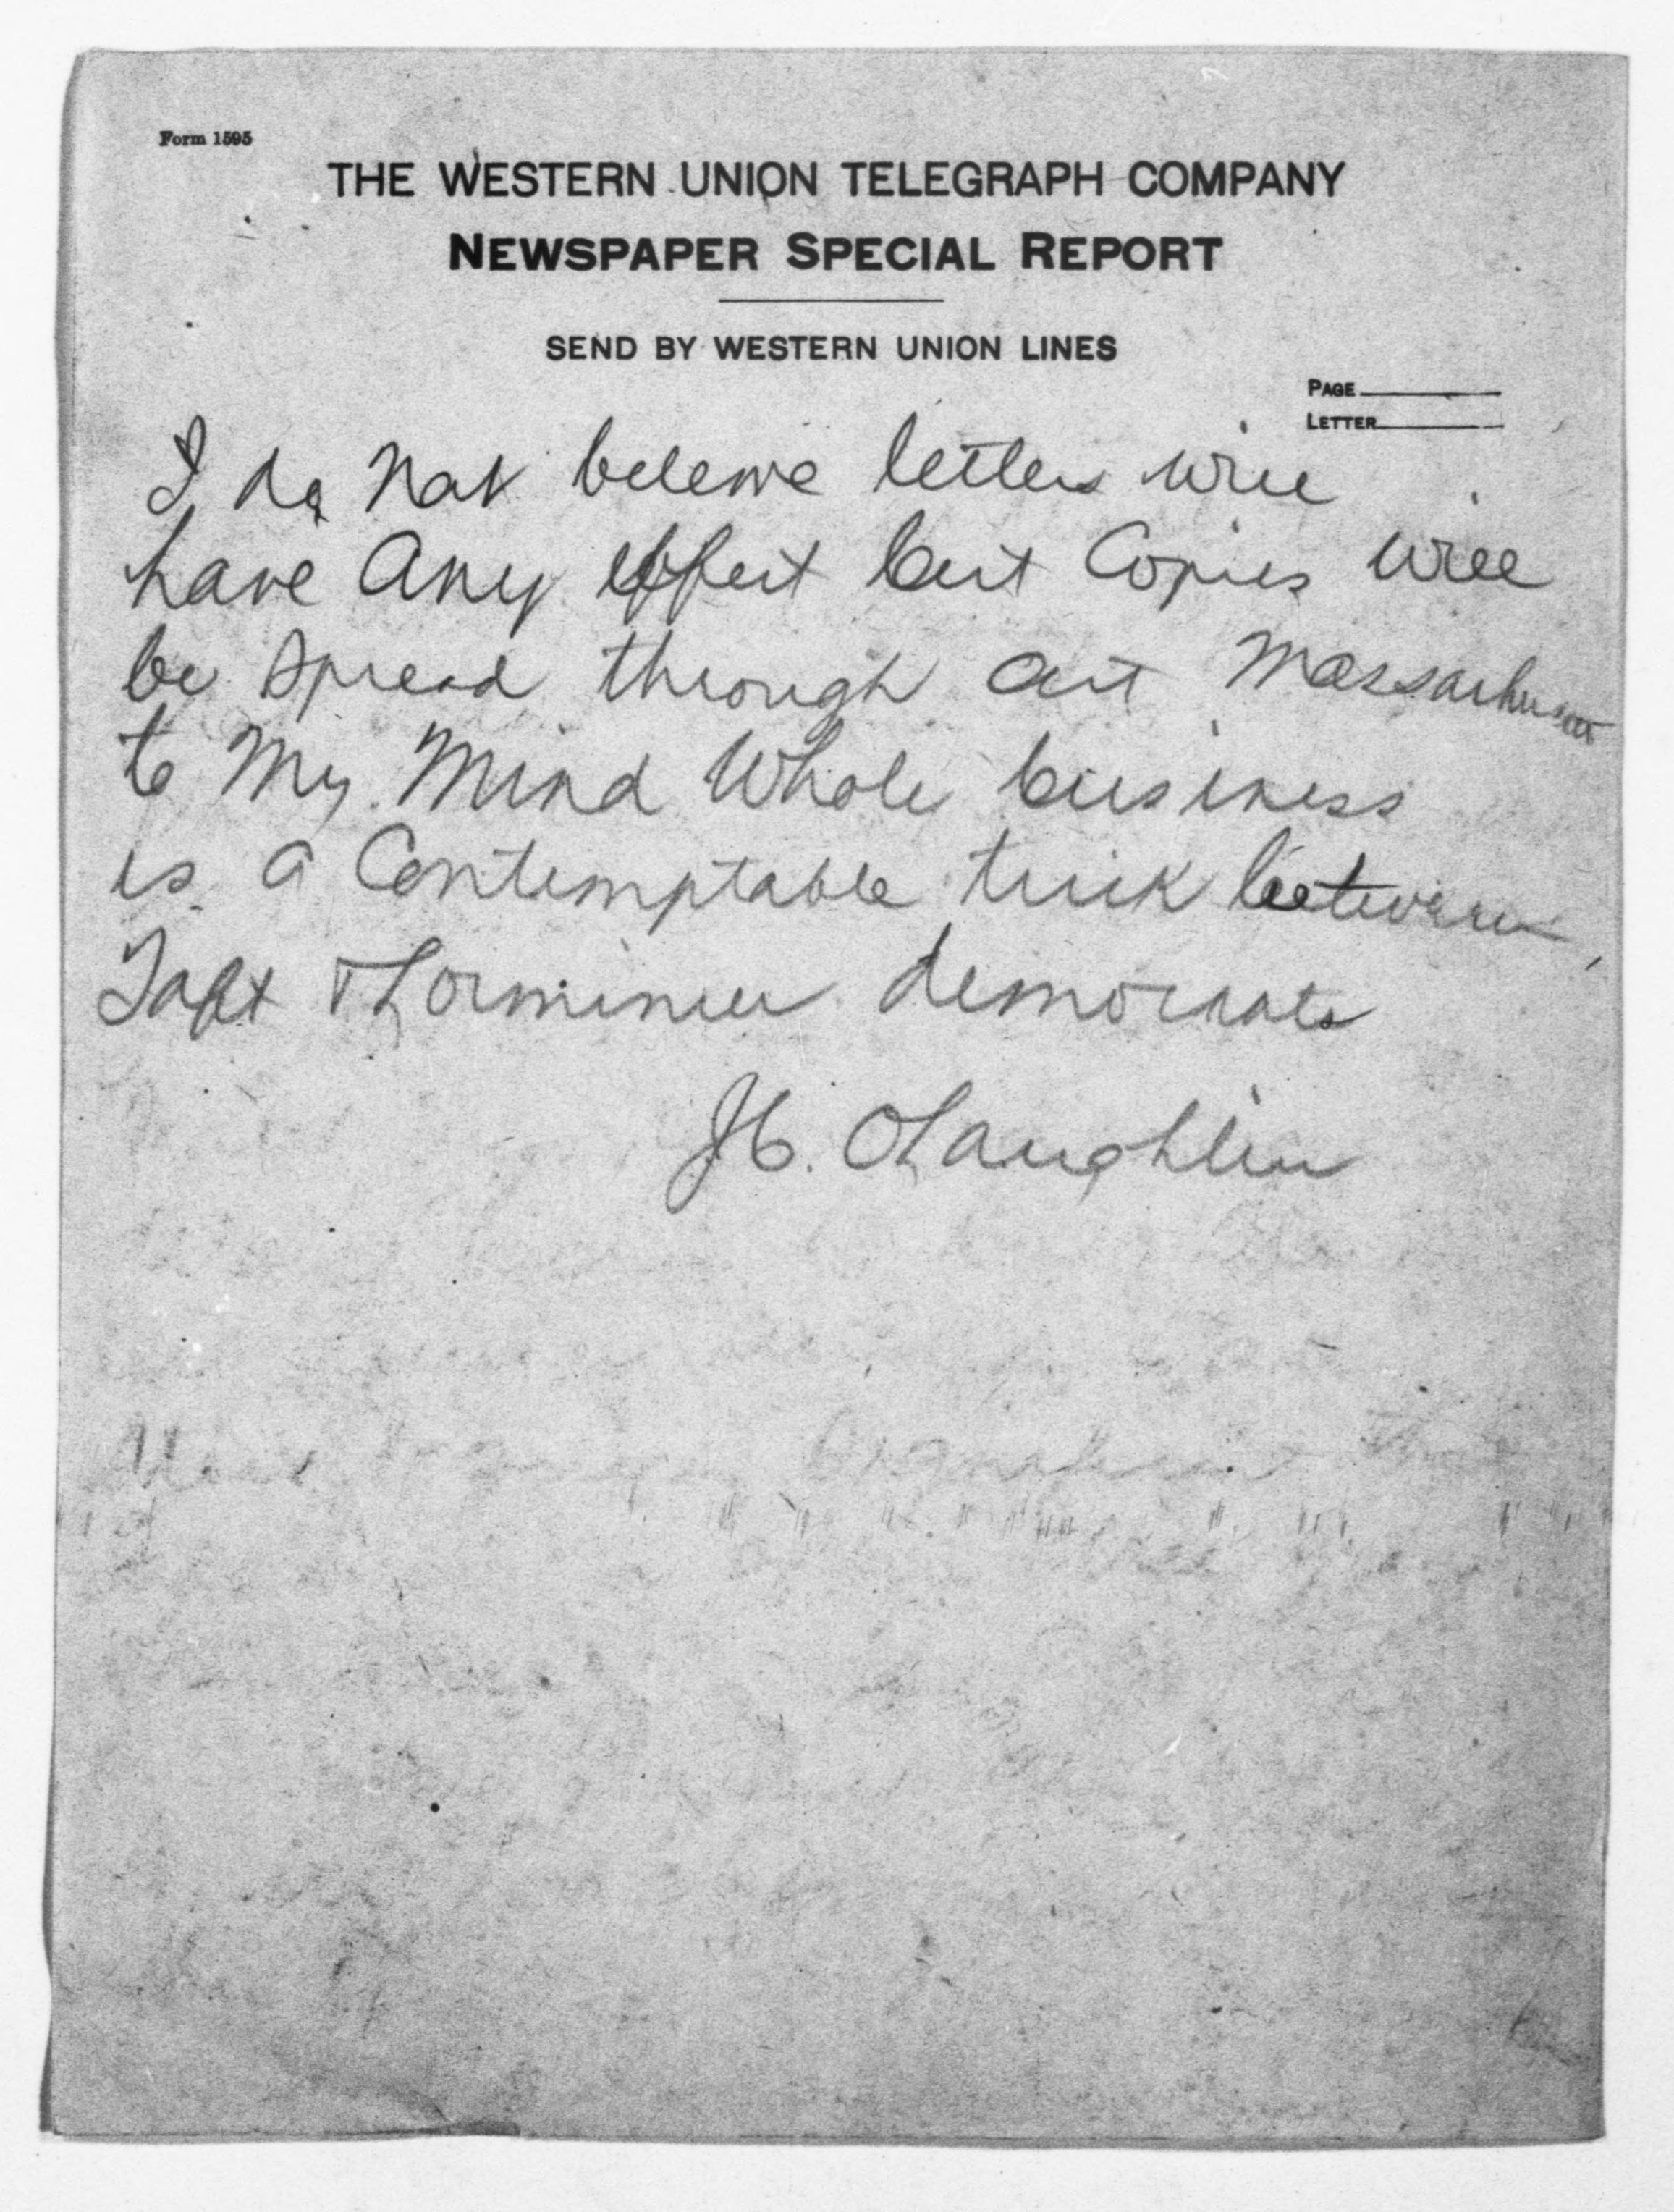 Form 1595
THE WESTERN UNION TELEGRAPH COMPANY
NEWSPAPER SPECIAL REPORT
SEND BY WESTERN UNION LINES
PAGE
LETTER
I do not beleive letters will
have any effect but Copies will
be spread through out Massachusett
to my mind whole business
is a Contemptable trick between
Taft & Lorminer democrats
JC. OLaughlin